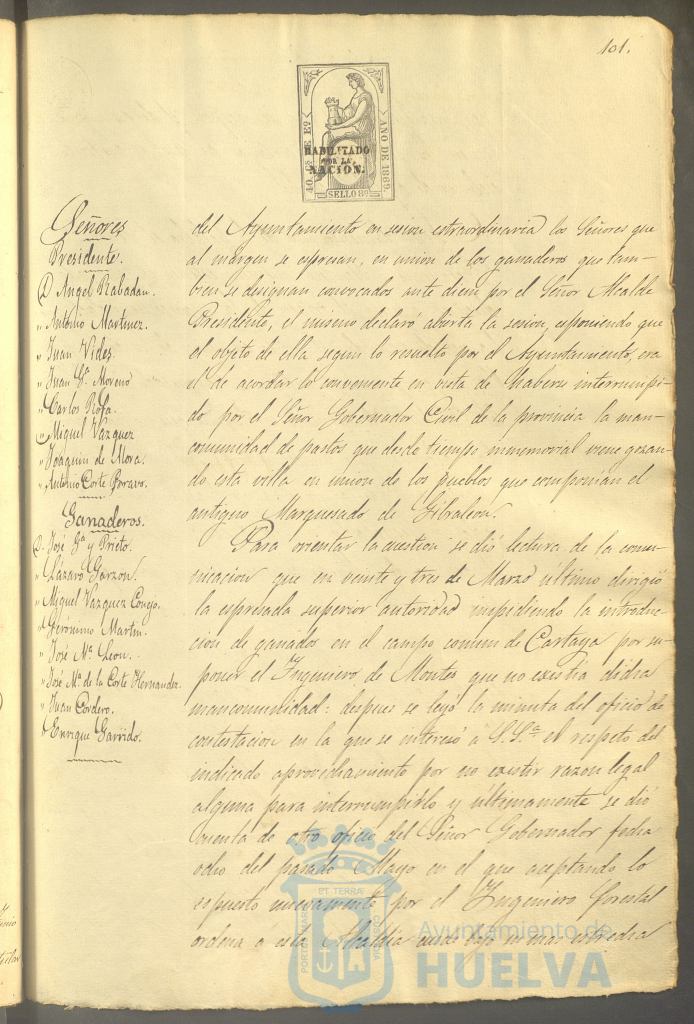 101.
40. Cs DE Eº
AÑO DE 1869.
HABILITADO
POR LA
NACION.
SELLO 8º
Señores
Presidente.
D Angel Rabadan.
" Antonio Martinez.
" Juan Vides.
" Juan Gª Moreno
" Carlos Rofa.
" Miguel Vazquez
" Joaquin de Mora.
" Antonio Corte Bravo.
Ganaderos.
D. José Gª y Prieto.
" Lazaro Garzon.
" Miguel Vazquez Conejo.
" Gerónimo Martin.
" José Mª Leon.
" José Mª de la Corte Hernandez.
" Juan Cordero.
" Enrique Garrido.
del Ayuntamiento en sesion estraordinaria los Señores que
al margen se espresan, en union de los ganaderos que tam-
bien se designan convocados ante diem por el Señor Alcalde
Presidente, el mismo declaró abierta la sesion, esponiendo que
el objeto de ella segun lo resuelto por el Ayuntamiento, era
el de acordar lo conveniente en vista de haberse interrumpi-
do por el Señor Gobernador Civil de la provincia la man-
comunidad de pastos que desde tiempo inmemorial viene gozan-
do esta villa en union de los pueblos que componian el
antiguo Marquesado de Gibraleon.
Para orientar la cuestion se dió lectura de la comu-
nicacion que en veinte y tres de Marzo ultimo dirigió
la espresada superior autoridad impidiendo la introduc-
cion de ganados en el campo comun de Cartaya por su-
poner el Ingeniero de Montes que no existia dicha
mancomunidad: despues se leyó la minuta del oficio de
contestacion en la que se interesó a S.Sª el respeto del
indicado aprovechamiento por no existir razon legal
alguna para interrumpirlo y ultimamente se dió
cuenta de otro oficio del Señor Gobernador fecha
ocho del pasado Mayo en el que aceptando lo
espuesto nuevamente por el Ingeniero forestal
ordena á esta Alcaldía bajo su mas estrecha
PORTUS MARIS
ET TERRAE
CUSTODIA
Ayuntamiento de
HUELVA